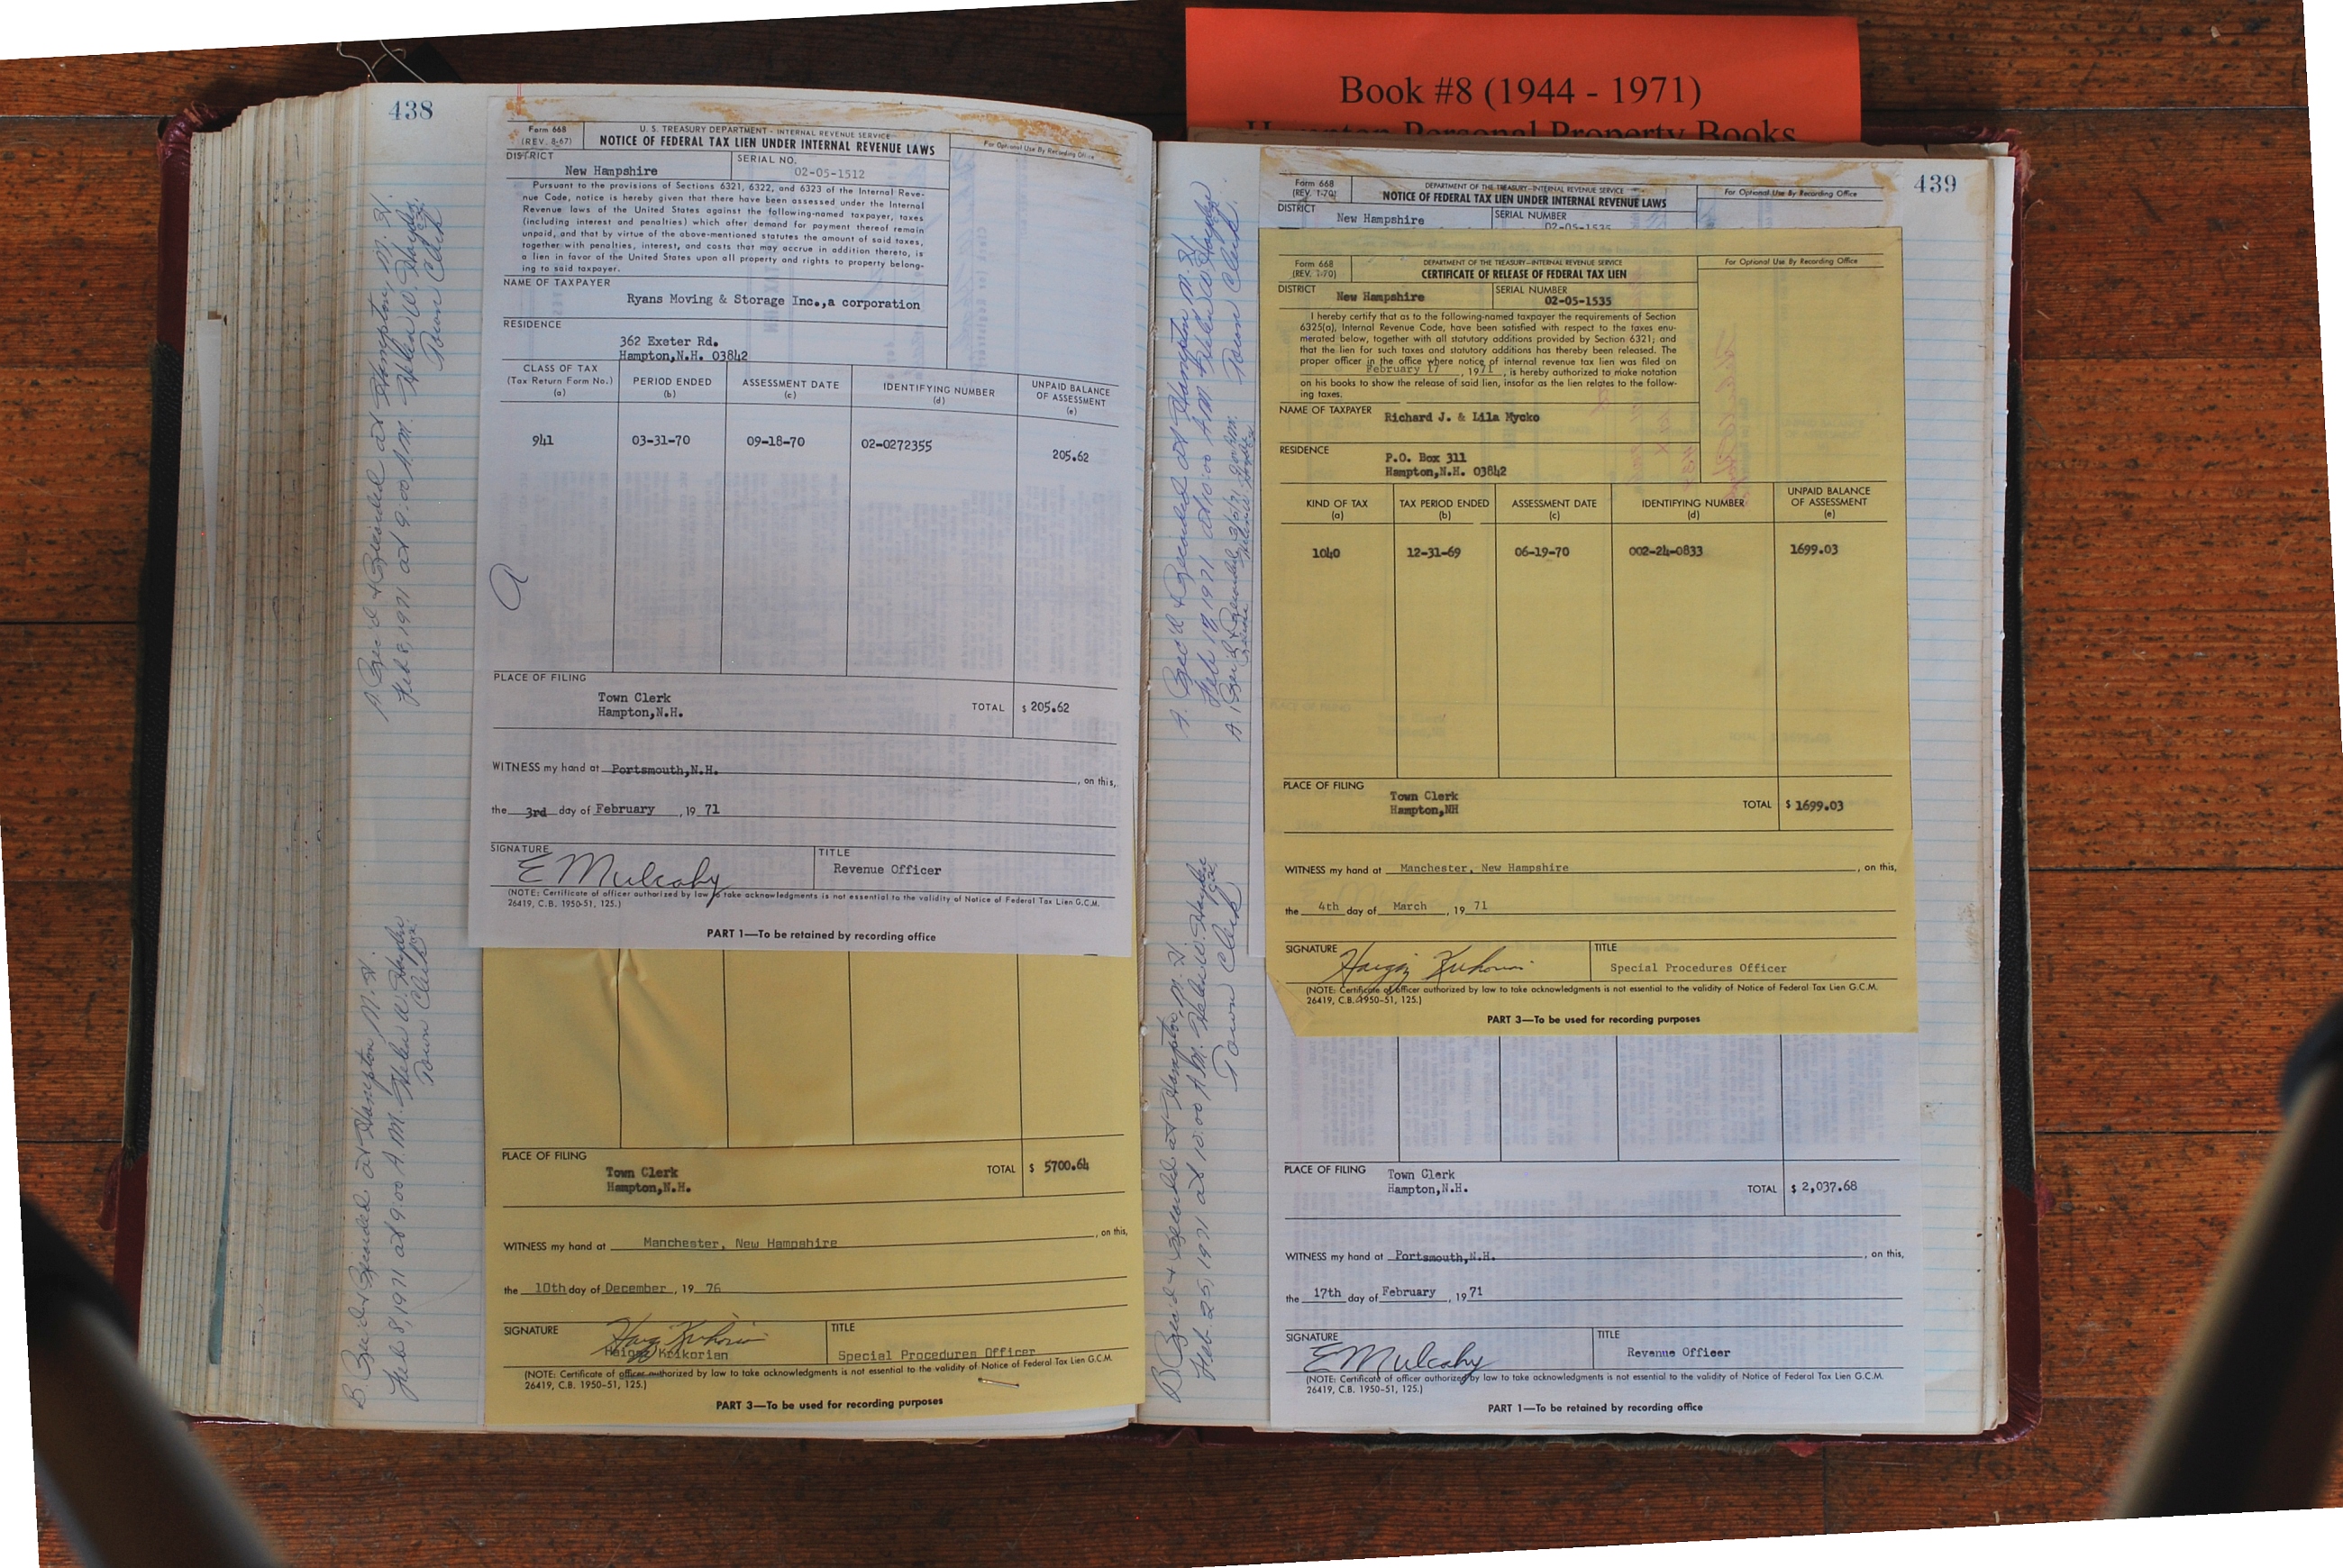 Book #8 (1944 - 1971)
Hampton Personal Property Books
438
Form 668
(REV. 8-67)
U. S. TREASURY DEPARTMENT - INTERNAL REVENUE SERVICE
NOTICE OF FEDERAL TAX LIEN UNDER INTERNAL REVENUE LAWS
For Optional Use By Recording Office
DISTRICT
New Hampshire
SERIAL NO.
02-05-1512
Pursuant to the provisions of Sections 6321, 6322, and 6323 of the Internal Reve-
nue Code, notice is hereby given that there have been assessed under the Internal
Revenue laws of the United States against the following-named taxpayer, taxes
(including interest and penalties) which after demand for payment thereof remain
unpaid, and that by virtue of the above-mentioned statutes the amount of said taxes,
together with penalties, interest, and costs that may accrue in addition thereto, is
a lien in favor of the United States upon all property and rights to property belong-
ing to said taxpayer.
NAME OF TAXPAYER
Ryans Moving & Storage Inc.,a corporation
RESIDENCE
362 Exeter Rd.
Hampton,N.H. 03842
CLASS OF TAX
(Tax Return Form No.)
(a)
PERIOD ENDED
(b)
ASSESSMENT DATE
(c)
IDENTIFYING NUMBER
(d)
UNPAID BALANCE
OF ASSESSMENT
(e)
941 03-31-70 09-18-70 02-0272355 205.62
a
PLACE OF FILING
Town Clerk
Hampton,N.H.
TOTAL $ 205.62
WITNESS my hand at Portsmouth,N.H. , on this,
the 3rd day of February , 19 71
SIGNATURE
E Mulcahy
TITLE
Revenue Officer
(NOTE: Certificate of officer authorized by law to take acknowledgments is not essential to the validity of Notice of Federal Tax Lien G.C.M.
26419, C.B. 1950-51, 125.)
PART 1—To be retained by recording office
PLACE OF FILING
Town Clerk
Hampton,N.H.
TOTAL $ 5700.64
WITNESS my hand at Manchester, New Hampshire , on this,
the 10th day of December , 19 76
SIGNATURE
Haigaz Krikorian
TITLE
Special Procedures Officer
(NOTE: Certificate of officer authorized by law to take acknowledgments is not essential to the validity of Notice of Federal Tax Lien G.C.M.
26419, C.B. 1950-51, 125.)
PART 3—To be used for recording purposes
A. Rec'd & Recorded at Hampton, N.H.
Feb 8, 1971 at 9:00 A.M. Helen W. Hayden
Town Clerk
B. Rec'd & Recorded at Hampton N.H.
Feb 8, 1971 at 9:00 A.M. Helen W. Hayden
Town Clerk
439
Form 668
(REV. 1-70)
DEPARTMENT OF THE TREASURY—INTERNAL REVENUE SERVICE
NOTICE OF FEDERAL TAX LIEN UNDER INTERNAL REVENUE LAWS
For Optional Use By Recording Office
DISTRICT
New Hampshire
SERIAL NUMBER
02-05-1535
Form 668
(REV. 1-70)
DEPARTMENT OF THE TREASURY—INTERNAL REVENUE SERVICE
CERTIFICATE OF RELEASE OF FEDERAL TAX LIEN
For Optional Use By Recording Office
DISTRICT
New Hampshire
SERIAL NUMBER
02-05-1535
I hereby certify that as to the following-named taxpayer the requirements of Section
6325(a), Internal Revenue Code, have been satisfied with respect to the taxes enu-
merated below, together with all statutory additions provided by Section 6321; and
that the lien for such taxes and statutory additions has thereby been released. The
proper officer in the office where notice of internal revenue tax lien was filed on
February 17 , 1971 , is hereby authorized to make notation
on his books to show the release of said lien, insofar as the lien relates to the follow-
ing taxes.
NAME OF TAXPAYER
Richard J. & Lila Mycko
RESIDENCE
P.O. Box 311
Hampton,N.H. 03842
KIND OF TAX
(a)
TAX PERIOD ENDED
(b)
ASSESSMENT DATE
(c)
IDENTIFYING NUMBER
(d)
UNPAID BALANCE
OF ASSESSMENT
(e)
1040 12-31-69 06-19-70 002-24-0833 1699.03
PLACE OF FILING
Town Clerk
Hampton,NH
TOTAL $ 1699.03
WITNESS my hand at Manchester, New Hampshire , on this,
the 4th day of March , 19 71
SIGNATURE
Haigaz Krikorian
TITLE
Special Procedures Officer
(NOTE: Certificate of officer authorized by law to take acknowledgments is not essential to the validity of Notice of Federal Tax Lien G.C.M.
26419, C.B. 1950-51, 125.)
PART 3—To be used for recording purposes
PLACE OF FILING
Town Clerk
Hampton,N.H.
TOTAL $ 2,037.68
WITNESS my hand at Portsmouth,N.H. , on this,
the 17th day of February , 19 71
SIGNATURE
E Mulcahy
TITLE
Revenue Officer
(NOTE: Certificate of officer authorized by law to take acknowledgments is not essential to the validity of Notice of Federal Tax Lien G.C.M.
26419, C.B. 1950-51, 125.)
PART 1—To be retained by recording office
A. Rec'd & Recorded at Hampton N.H.
Feb 18 1971 at 10:00 A.M. Helen W. Hayden
Town Clerk
B. Rec'd & Recorded at Hampton, N.H.
Feb. 25, 1971 at 10:00 A.M. Helen W. Hayden
Town Clerk